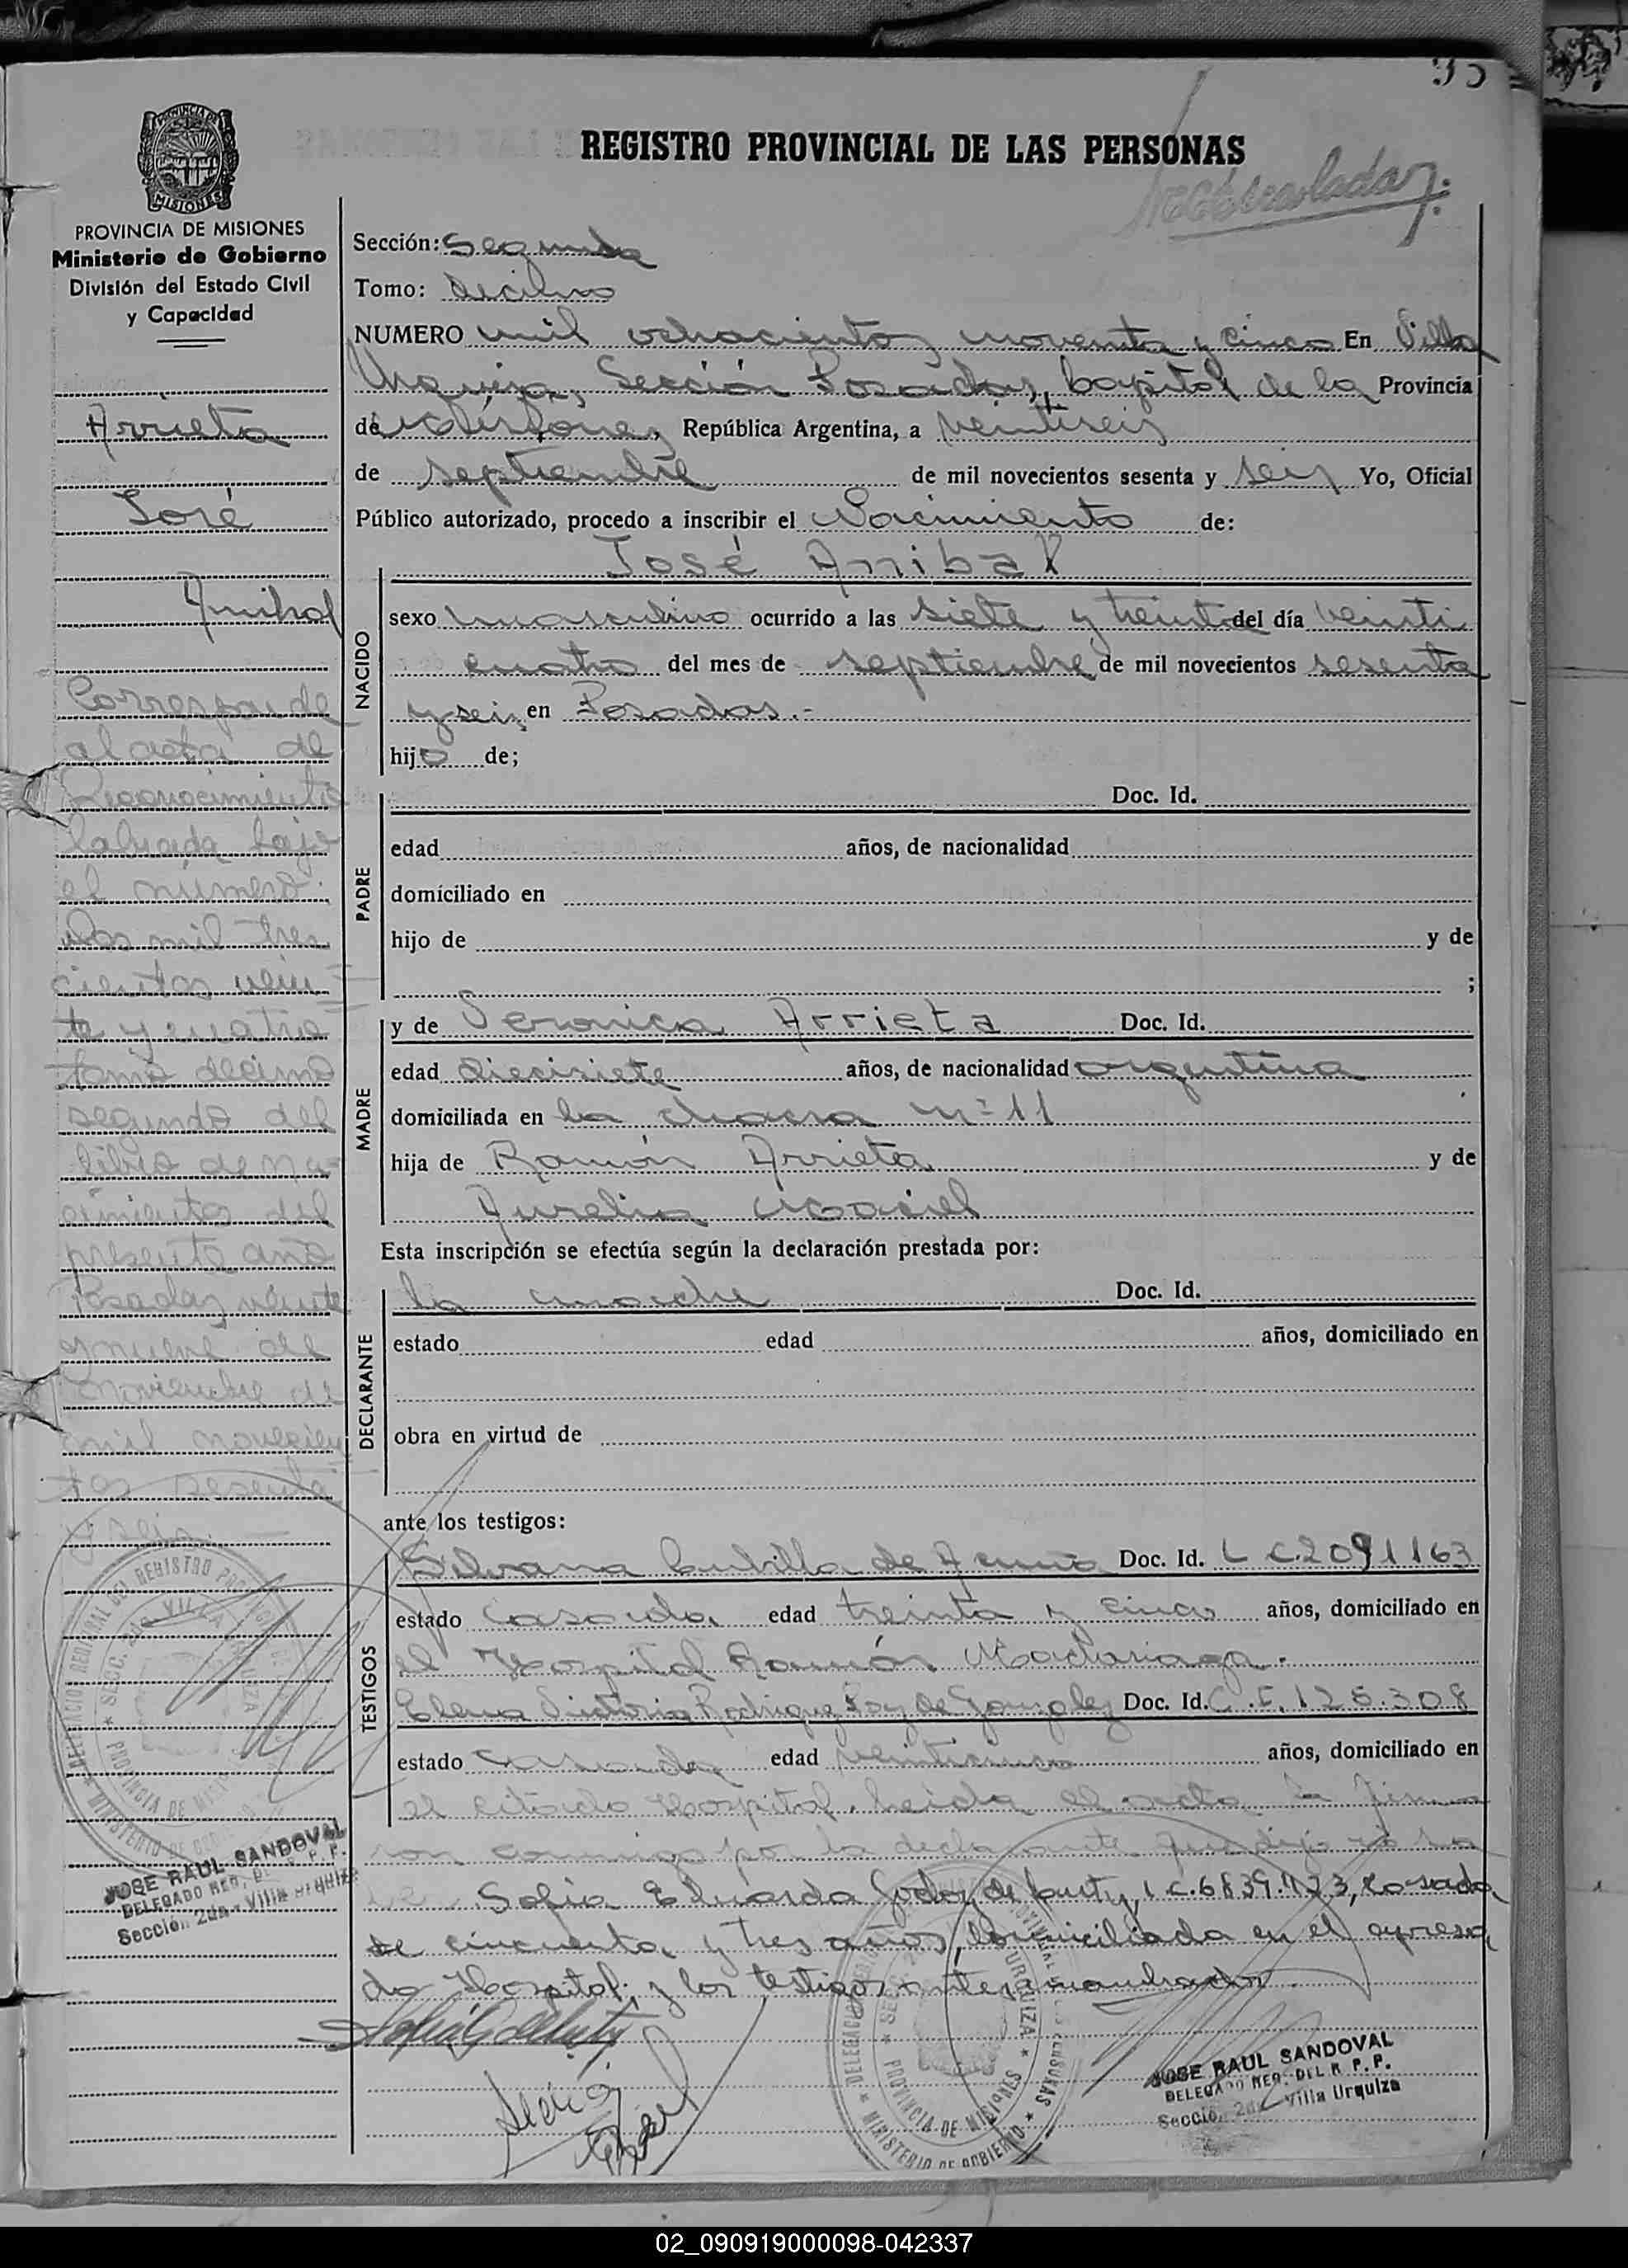 95
REGISTRO PROVINCIAL DE LAS PERSONAS
PROVINCIA DE MISIONES
Ministerio de Gobierno
División del Estado Civil
y Capacidad
Arrieta
José
Anibal
Corresponde
al acta de
Reconocimiento
labrada bajo
el número
dos mil tres
cientos vein
te y cuatro
tomo decimo
segundo del
libro de na
cimientos del
presente año
Posadas, veinte
y nueve de
noviembre de
mil novecien
tos sesenta
y seis.
Sección: Segunda
Tomo: decimo
NUMERO mil ochocientos noventa y cinco En Villa
Urquiza, Sección Posadas, Capital de la Provincia
de Misiones, República Argentina, a veintiseis
de septiembre de mil novecientos sesenta y seis Yo, Oficial
Público autorizado, procedo a inscribir el Nacimiento de:
NACIDO
José Anibal
sexo masculino ocurrido a las siete y treinta del día veinti
cuatro del mes de septiembre de mil novecientos sesenta
y seis en Posadas.-
hijo de;
PADRE
Doc. Id.
edad años, de nacionalidad
domiciliado en
hijo de y de
;
MADRE
y de Veronica Arrieta Doc. Id.
edad diecisiete años, de nacionalidad argentina
domiciliada en la chacra nº 11
hija de Ramón Arrieta y de
Aurelia Maciel
Esta inscripción se efectúa según la declaración prestada por:
DECLARANTE
la madre Doc. Id.
estado edad años, domiciliado en
obra en virtud de
ante los testigos:
TESTIGOS
Silvana de Acuña Doc. Id. L.C.2091163
estado casada edad treinta y cinco años, domiciliado en
el Hospital Ramón Madariaga.
Elena Victoria Rodriguez de Gonzalez Doc. Id. C.I. 125.308
estado casada edad años, domiciliado en
el citado Hospital. Leida el acta la firma
ron conmigo por la declarante que dijo no sa
Sofia Eduarda Godoy de L.C.6839.123, casada
de cincuenta y tres años, domiciliada en el expresa
do Hospital; y los testigos antes nombrados.
DELEGACIO REGIONAL DEL REGISTRO PROVINCIAL
MINISTERIO DE GOBIERNO
SECC. 2da VILLA URQUIZA
PROVINCIA DE MISIONES
JOSE RAUL SANDOVAL
DELEGADO REG. DEL R. P. P.
Sección 2da - Villa Urquiza
URQUIZA
PROVINCIA DE MISIONES
MINISTERIO DE GOBIERNO
JOSE RAUL SANDOVAL
DELEGADO REG. DEL R. P. P.
Sección 2da Villa Urquiza
02_090919000098-042337